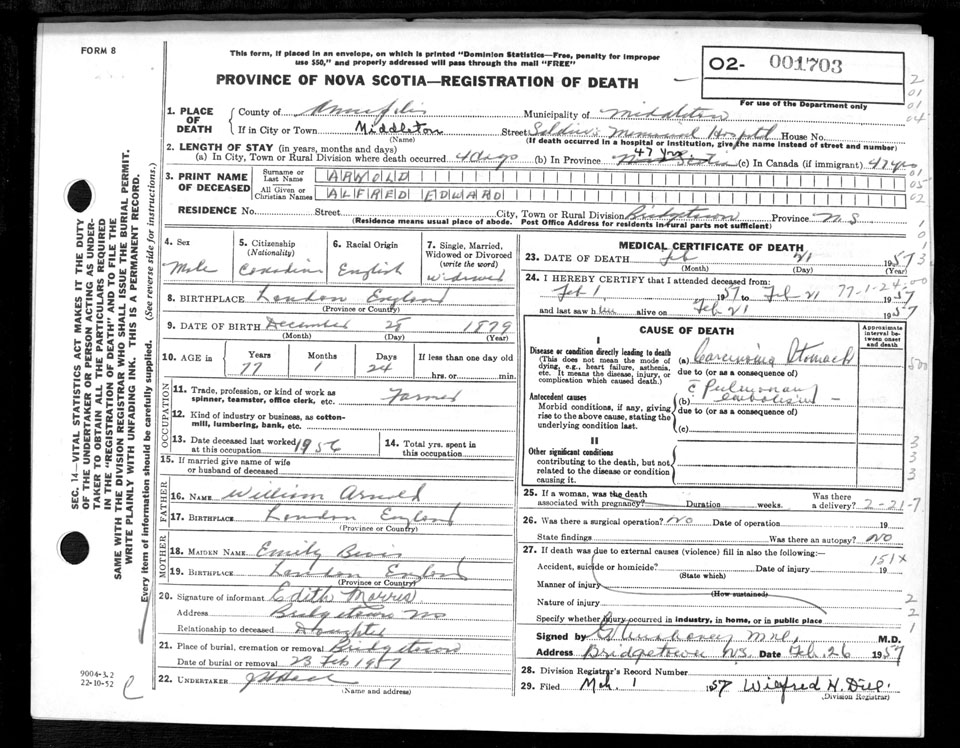 FORM 8
This form, if placed in an envelope, on which is printed "Dominion Statistics—Free, penalty for improper
use $50," and properly addressed will pass through the mail "FREE"
PROVINCE OF NOVA SCOTIA—REGISTRATION OF DEATH
O2- 001703
For use of the Department only
SEC. 14—VITAL STATISTICS ACT MAKES IT THE DUTY
OF THE UNDERTAKER OR PERSON ACTING AS UNDER-
TAKER TO OBTAIN ALL THE PARTICULARS REQUIRED
IN THE "REGISTRATION OF DEATH" AND TO FILE THE
SAME WITH THE DIVISION REGISTRAR WHO SHALL ISSUE THE BURIAL PERMIT.
WRITE PLAINLY WITH UNFADING INK. THIS IS A PERMANENT RECORD.
Every item of information should be carefully supplied. (See reverse side for instructions.)
1. PLACE OF DEATH
County of Annapolis Municipality of Middleton
If in City or Town Middleton Street Soldiers Memorial Hospital House No.
(Name) (If death occurred in a hospital or institution, give the name instead of street and number)
2. LENGTH OF STAY (in years, months and days)
(a) In City, Town or Rural Division where death occurred 4 days (b) In Province 47 yrs Nova Scotia (c) In Canada (if immigrant) 47 yrs
3. PRINT NAME OF DECEASED
Surname or Last Name ARNOLD
All Given or Christian Names ALFRED EDWARD
RESIDENCE No. Street City, Town or Rural Division Bridgetown Province N S
(Residence means usual place of abode. Post Office Address for residents in rural parts not sufficient)
4. Sex Male
5. Citizenship (Nationality) Canadian
6. Racial Origin English
7. Single, Married, Widowed or Divorced (write the word) Widowed
8. BIRTHPLACE London England
(Province or Country)
9. DATE OF BIRTH December 28 1879
(Month) (Day) (Year)
10. AGE in Years 77 Months 1 Days 24 If less than one day old
hrs. or min.
OCCUPATION
11. Trade, profession, or kind of work as
spinner, teamster, office clerk, etc. Farmer
12. Kind of industry or business, as cotton-
mill, lumbering, bank, etc.
13. Date deceased last worked at this occupation 1956
14. Total yrs. spent in this occupation
15. If married give name of wife
or husband of deceased
FATHER
16. NAME William Arnold
17. BIRTHPLACE London England
(Province or Country)
MOTHER
18. MAIDEN NAME Emily
19. BIRTHPLACE London England
(Province or Country)
20. Signature of informant Edith Morris
Address Bridgetown NS
Relationship to deceased Daughter
21. Place of burial, cremation or removal Bridgetown
Date of burial or removal 23 Feb 1957
22. UNDERTAKER
(Name and address)
9004-3.2
22-10-52
MEDICAL CERTIFICATE OF DEATH
23. DATE OF DEATH Feb 21 1957
(Month) (Day) (Year)
24. I HEREBY CERTIFY that I attended deceased from:
Feb 1 1957 to Feb 21 1957
77-1-24
and last saw him alive on Feb 21 1957
CAUSE OF DEATH
Approximate interval between onset and death
I
Disease or condition directly leading to death
(This does not mean the mode of
dying, e.g., heart failure, asthenia,
etc. It means the disease, injury, or
complication which caused death.)
(a) Carcinoma Stomach
due to (or as a consequence of)
Antecedent causes
Morbid conditions, if any, giving
rise to the above cause, stating the
underlying condition last.
(b) c Pulmonary Embolism
due to (or as a consequence of)
(c)
II
Other significant conditions
contributing to the death, but not
related to the disease or condition
causing it.
25. If a woman, was the death
associated with pregnancy? Duration weeks. Was there a delivery?
2-21-7
26. Was there a surgical operation? NO Date of operation 19
State findings Was there an autopsy? NO
27. If death was due to external causes (violence) fill in also the following:—
Accident, suicide or homicide? Date of injury 19
151X
(State which)
Manner of injury
(How sustained)
Nature of injury
Specify whether injury occurred in industry, in home, or in public place
Signed by M.D.
Address Bridgetown N.S. Date Feb. 26 1957
28. Division Registrar's Record Number
29. Filed Mch. 1 1957 Wilfred H. Dill.
(Division Registrar)